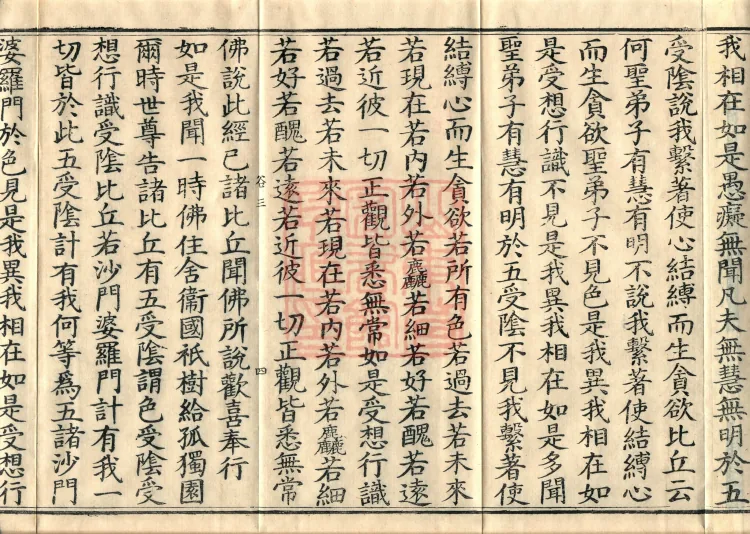 我相在如是愚癡無聞凡夫無慧無明於五
受陰說我繫著使心結縛而生貪欲比丘云
何聖弟子有慧有明不說我繫著使結縛心
而生貪欲聖弟子不見色是我異我相在如
是受想行識不見是我異我相在如是多聞
聖弟子有慧有明於五受陰不見我繫著使
結縛心而生貪欲若所有色若過去若未來
若現在若內若外若麤若細若好若醜若遠
若近彼一切正觀皆悉無常如是受想行識
若過去若未來若現在若內若外若麤若細
若好若醜若遠若近彼一切正觀皆悉無常
谷三 四
佛說此經已諸比丘聞佛所說歡喜奉行
如是我聞一時佛住舍衞國祇樹給孤獨園
爾時世尊告諸比丘有五受陰謂色受陰受
想行識受陰比丘若沙門婆羅門計有我一
切皆於此五受陰計有我何等爲五諸沙門
婆羅門於色見是我異我相在如是受想行